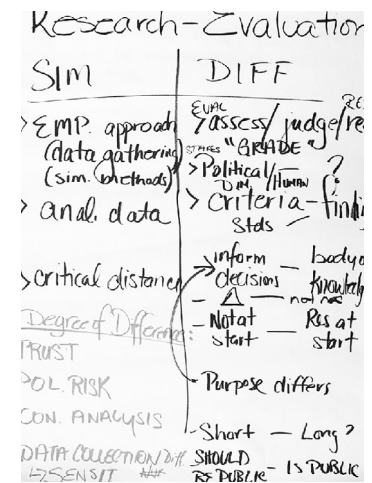 Research-Evaluation
SIM
DIFF
> EMP. approach
(data gathering)
(sim. methods)
> anal. data
> critical distance
Degree of Difference:
TRUST
POL. RISK
CON. ANALYSIS
DATA COLLECTION Diff.
↳ SENSIT
EVAL
> assess/judge/re
RES
STAKES "GRADE"
> Political/HUMAN ?
DIM.
> criteria - findin
Stds
inform decisions — body o
knowledg
- △ — not
- Not at start — Res at start
- Purpose differs
- Short — Long?
SHOULD
BE PUBLIC - IS PUBLIC